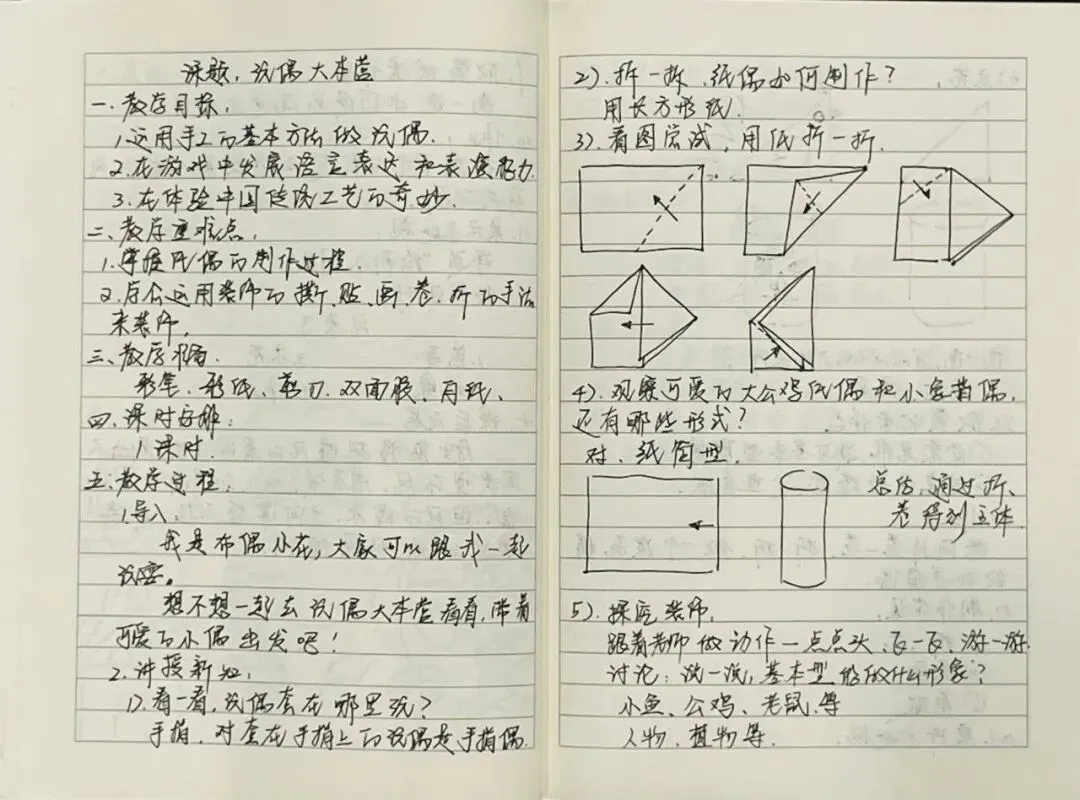 课题：纸偶大本营
一.教学目标：
1.运用手工的基本方法做纸偶.
2.在游戏中发展语言表达和表演能力
3.在体验中国传统工艺的奇妙.
二、教学重难点：
1.掌握纸偶的制作过程.
2.学会运用装饰的撕、贴、画、卷、折的手法
来装饰.
三、教学准备.
彩笔、彩纸、剪刀、双面胶、白纸、
四.课时安排：
1课时.
五.教学过程：
1.导入.
我是布偶小花，大家可以跟我一起
玩耍。
想不想一起去纸偶大本营看看，带着
可爱的小偶出发吧！
2.讲授新知：
1).看一看，纸偶套在哪里玩？
手指.对套在手指上的纸偶是手指偶.
2).拆一拆.纸偶如何制作？
用长方形纸.
3).看图尝试，用纸折一折.
4).观察可爱的大公鸡纸偶和小象指偶，
还有哪些形式？
对、纸筒型.
总结：通过折、
卷得到立体
5).探究装饰.
跟着老师做动作一点点头、飞一飞、游一游.
讨论：说一说，基本型能做什么形象？
小鱼、公鸡、老鼠.等
人物、植物等.